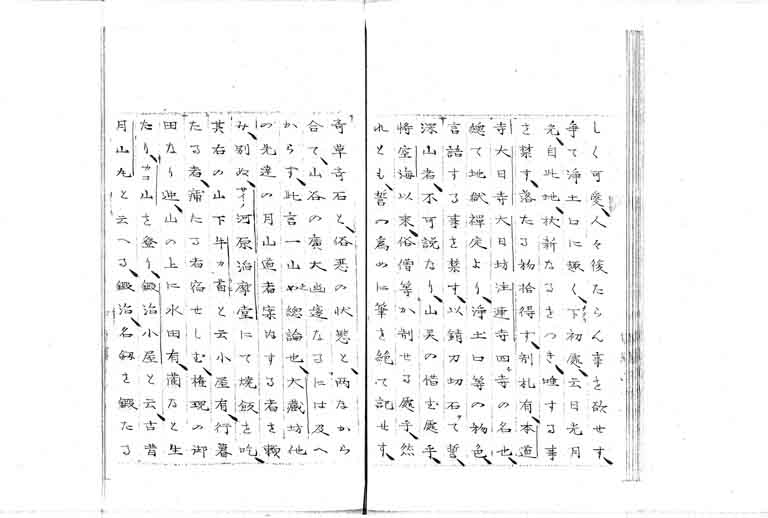 しく可愛人々後たらん事を欲せす
争て浄土口に趣く下初處云日光月
光自此地状新なるきつき唾する事
を禁す落たる物拾得す制札有本道
寺大日寺大日坊注連寺四ヶ寺の名也
總て地獄禪定より浄土口等の物色
言語する事を禁す以錆刀切石て誓
深山者不可説なり山灵の惜む處乎
将空海以來俗僧等か制せる處乎然
れとも誓の為めに筆を絶て記せす
奇草奇石と俗悪の状態と両なから
合て山谷の廣大幽邃なるには及へ
からす此言一山の總論也大蔵坊他
の先達の月山道者案内する者を頼
み別ぬサイノ河原治摩堂にて焼飯を吃
其右の山下牛ヵ首と云小屋有行暮
たる者痛たる者宿せしむ権現の御
田なり迎山の上に水田有菌なと生
たりカコ山を登り鍛冶小屋と云古昔
月山丸と云へる鍛冶名劔を鍛たる